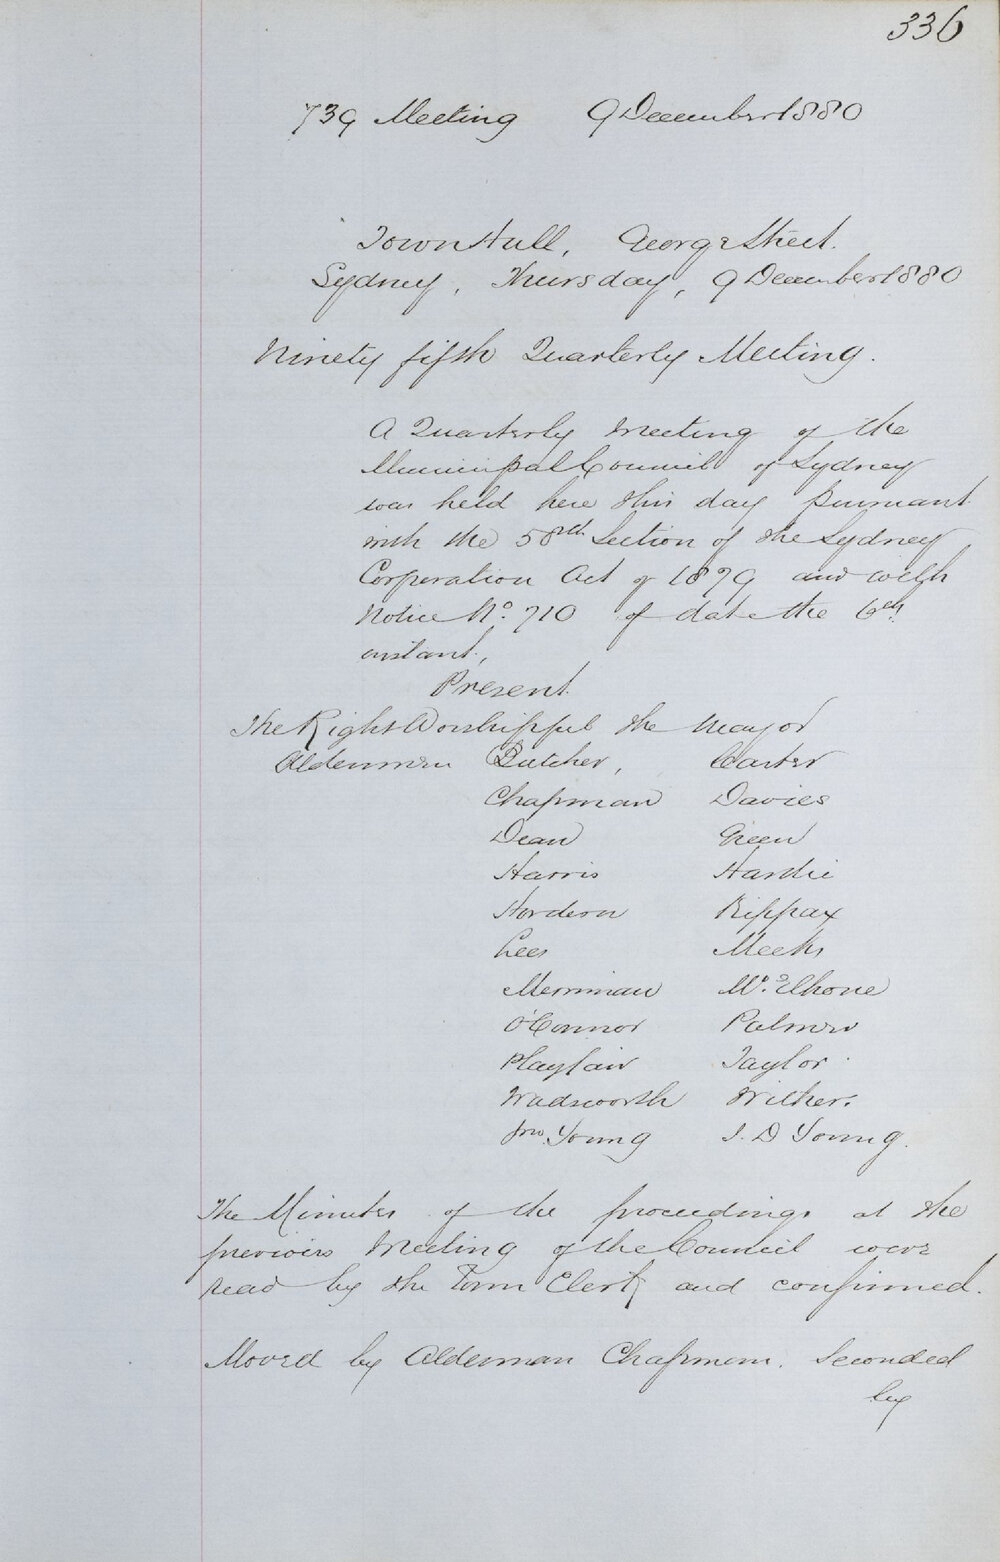 336
739 Meeting 9 December 1880
Town Hall, George Street.
Sydney, Thursday, 9 December 1880
Ninety fifth Quarterly Meeting.
A Quarterly Meeting of the
Municipal Council of Sydney
was held here this day pursuant
with the 58th Section of the Sydney
Corporation Act of 1879 and with
Notice No. 710 of date the 6th
instant,
Present
The Right Worshipful the Mayor
Aldermen Butcher, Carter
Chapman Davies
Dean Green
Harris Hardie
Hordern Kippax
Lees Meeks
Merriman McElhone
O'Connor Palmer
Playfair Taylor
Wadsworth Withers
Jno. Young J. D Young.
The Minutes of the proceedings at the
previous Meeting of the Council were
read by the Town Clerk and confirmed.
Moved by Alderman Chapman. Seconded
by